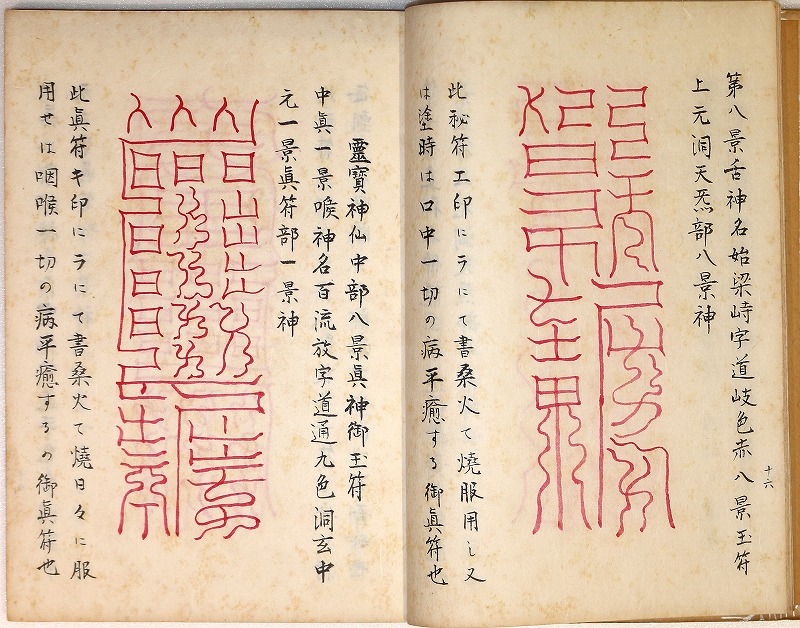 第八景舌神名始梁峙字道岐色赤八景玉符
上元洞天炁部八景神
此秘符エ印にラにて書桑火て燒服用し又
は塗時は口中一切の病平癒する御眞符也
十六
靈寶神仙中部八景眞神御玉符
中眞一景喉神名百流放字道通九色洞玄中
元一景眞符部一景神
此眞符キ印にラにて書桑火て燒日々に服
用せは咽喉一切の病平癒するの御眞符也